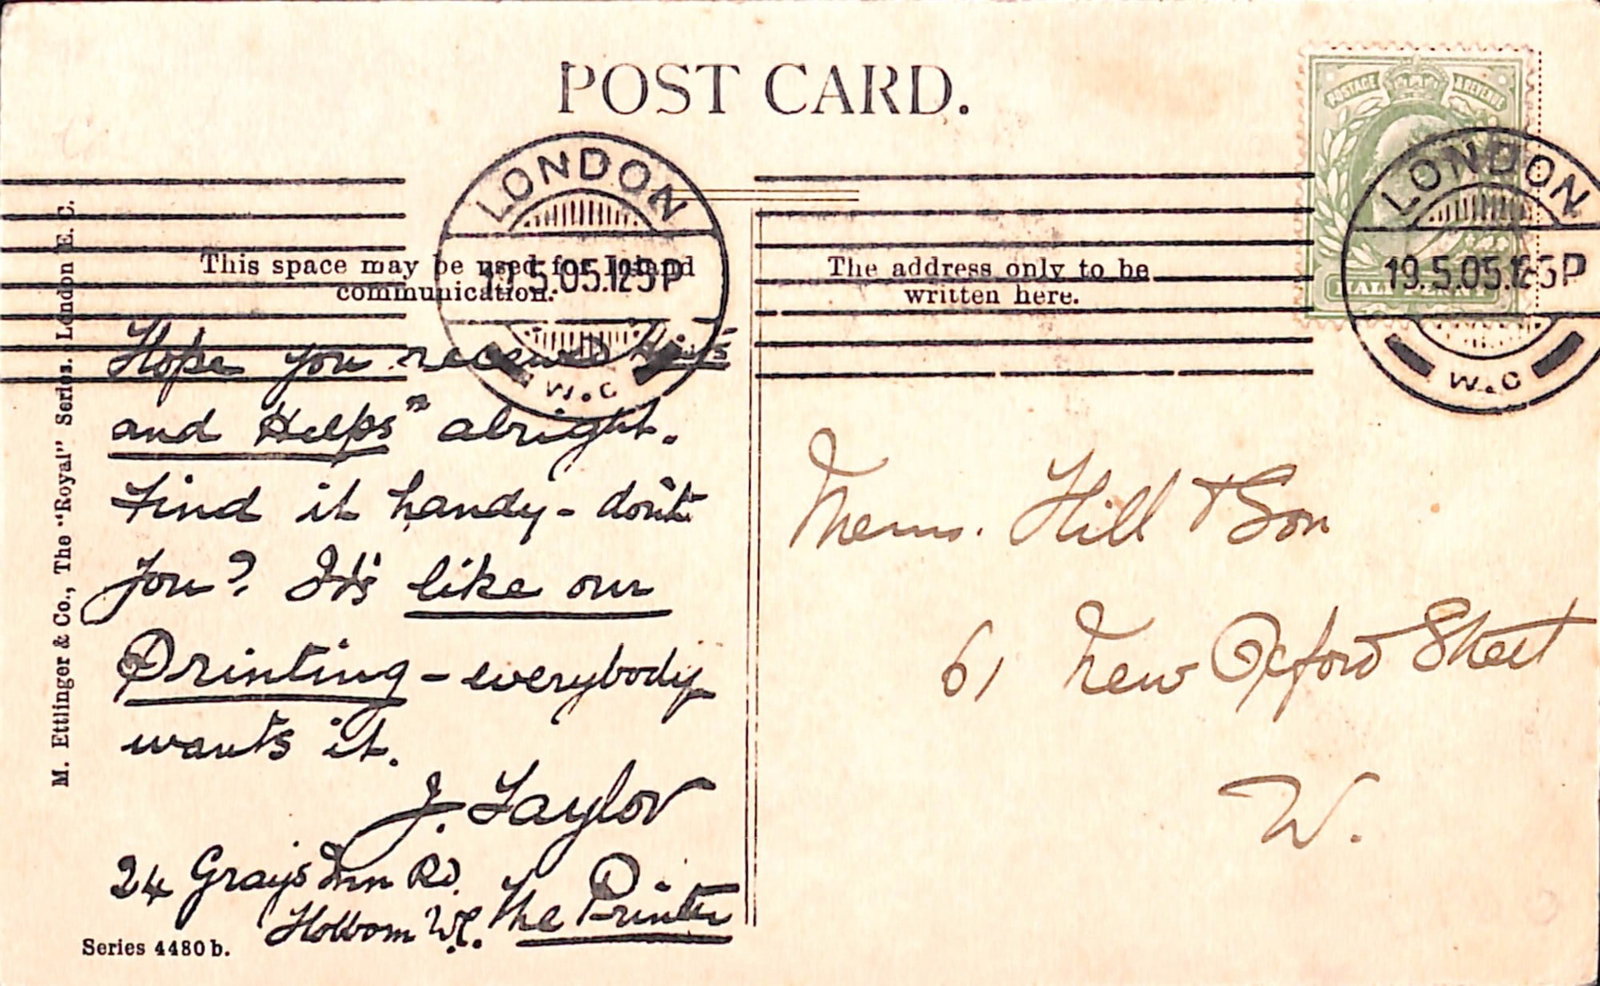 POST CARD.
POSTAGE & REVENUE
HALF PENNY
LONDON
19.5.05.12 5P
W.C
LONDON
19.5.05.12 5P
W.C
This space may be used for Inland
communication.
The address only to be
written here.
Hope you received Hints
and Helps" alright.
Find it handy - don't
you? It's like our
Printing - everybody
wants it.
J. Taylor
24 Grays Inn Rd.
Holborn W.C. The Printer
Messrs. Hill & Son
61 New Oxford Street
W.
M. Ettlinger & Co., The "Royal" Series. London E. C.
Series 4480 b.